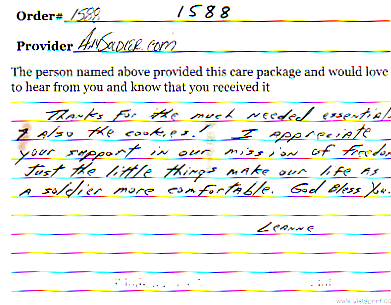 Order# 1588 1588
Provider AnySoldier.com
The person named above provided this care package and would love
to hear from you and know that you received it
Thanks for the much needed essentials
& Also the cookies! I appreciate
your support in our mission of freedom
Just the little things make our life as
A soldier more comfortable. God Bless You.
Leanne